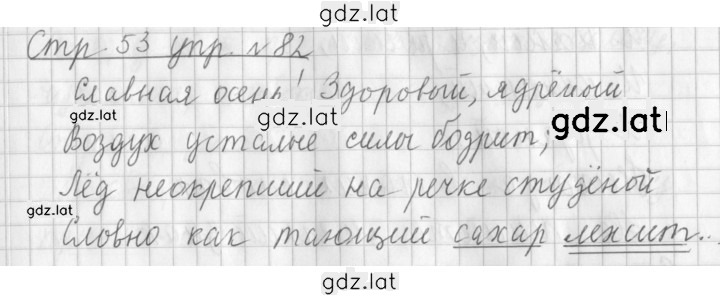 gdz.lat
Стр. 53 упр. №82
Славная осень! Здоровый, ядрёный
gdz.lat gdz.lat gdz.lat
Воздух усталые силы бодрит;
Лёд неокрепший на речке студёной
gdz.lat
Словно как тающий сахар лежит...
gdz.lat